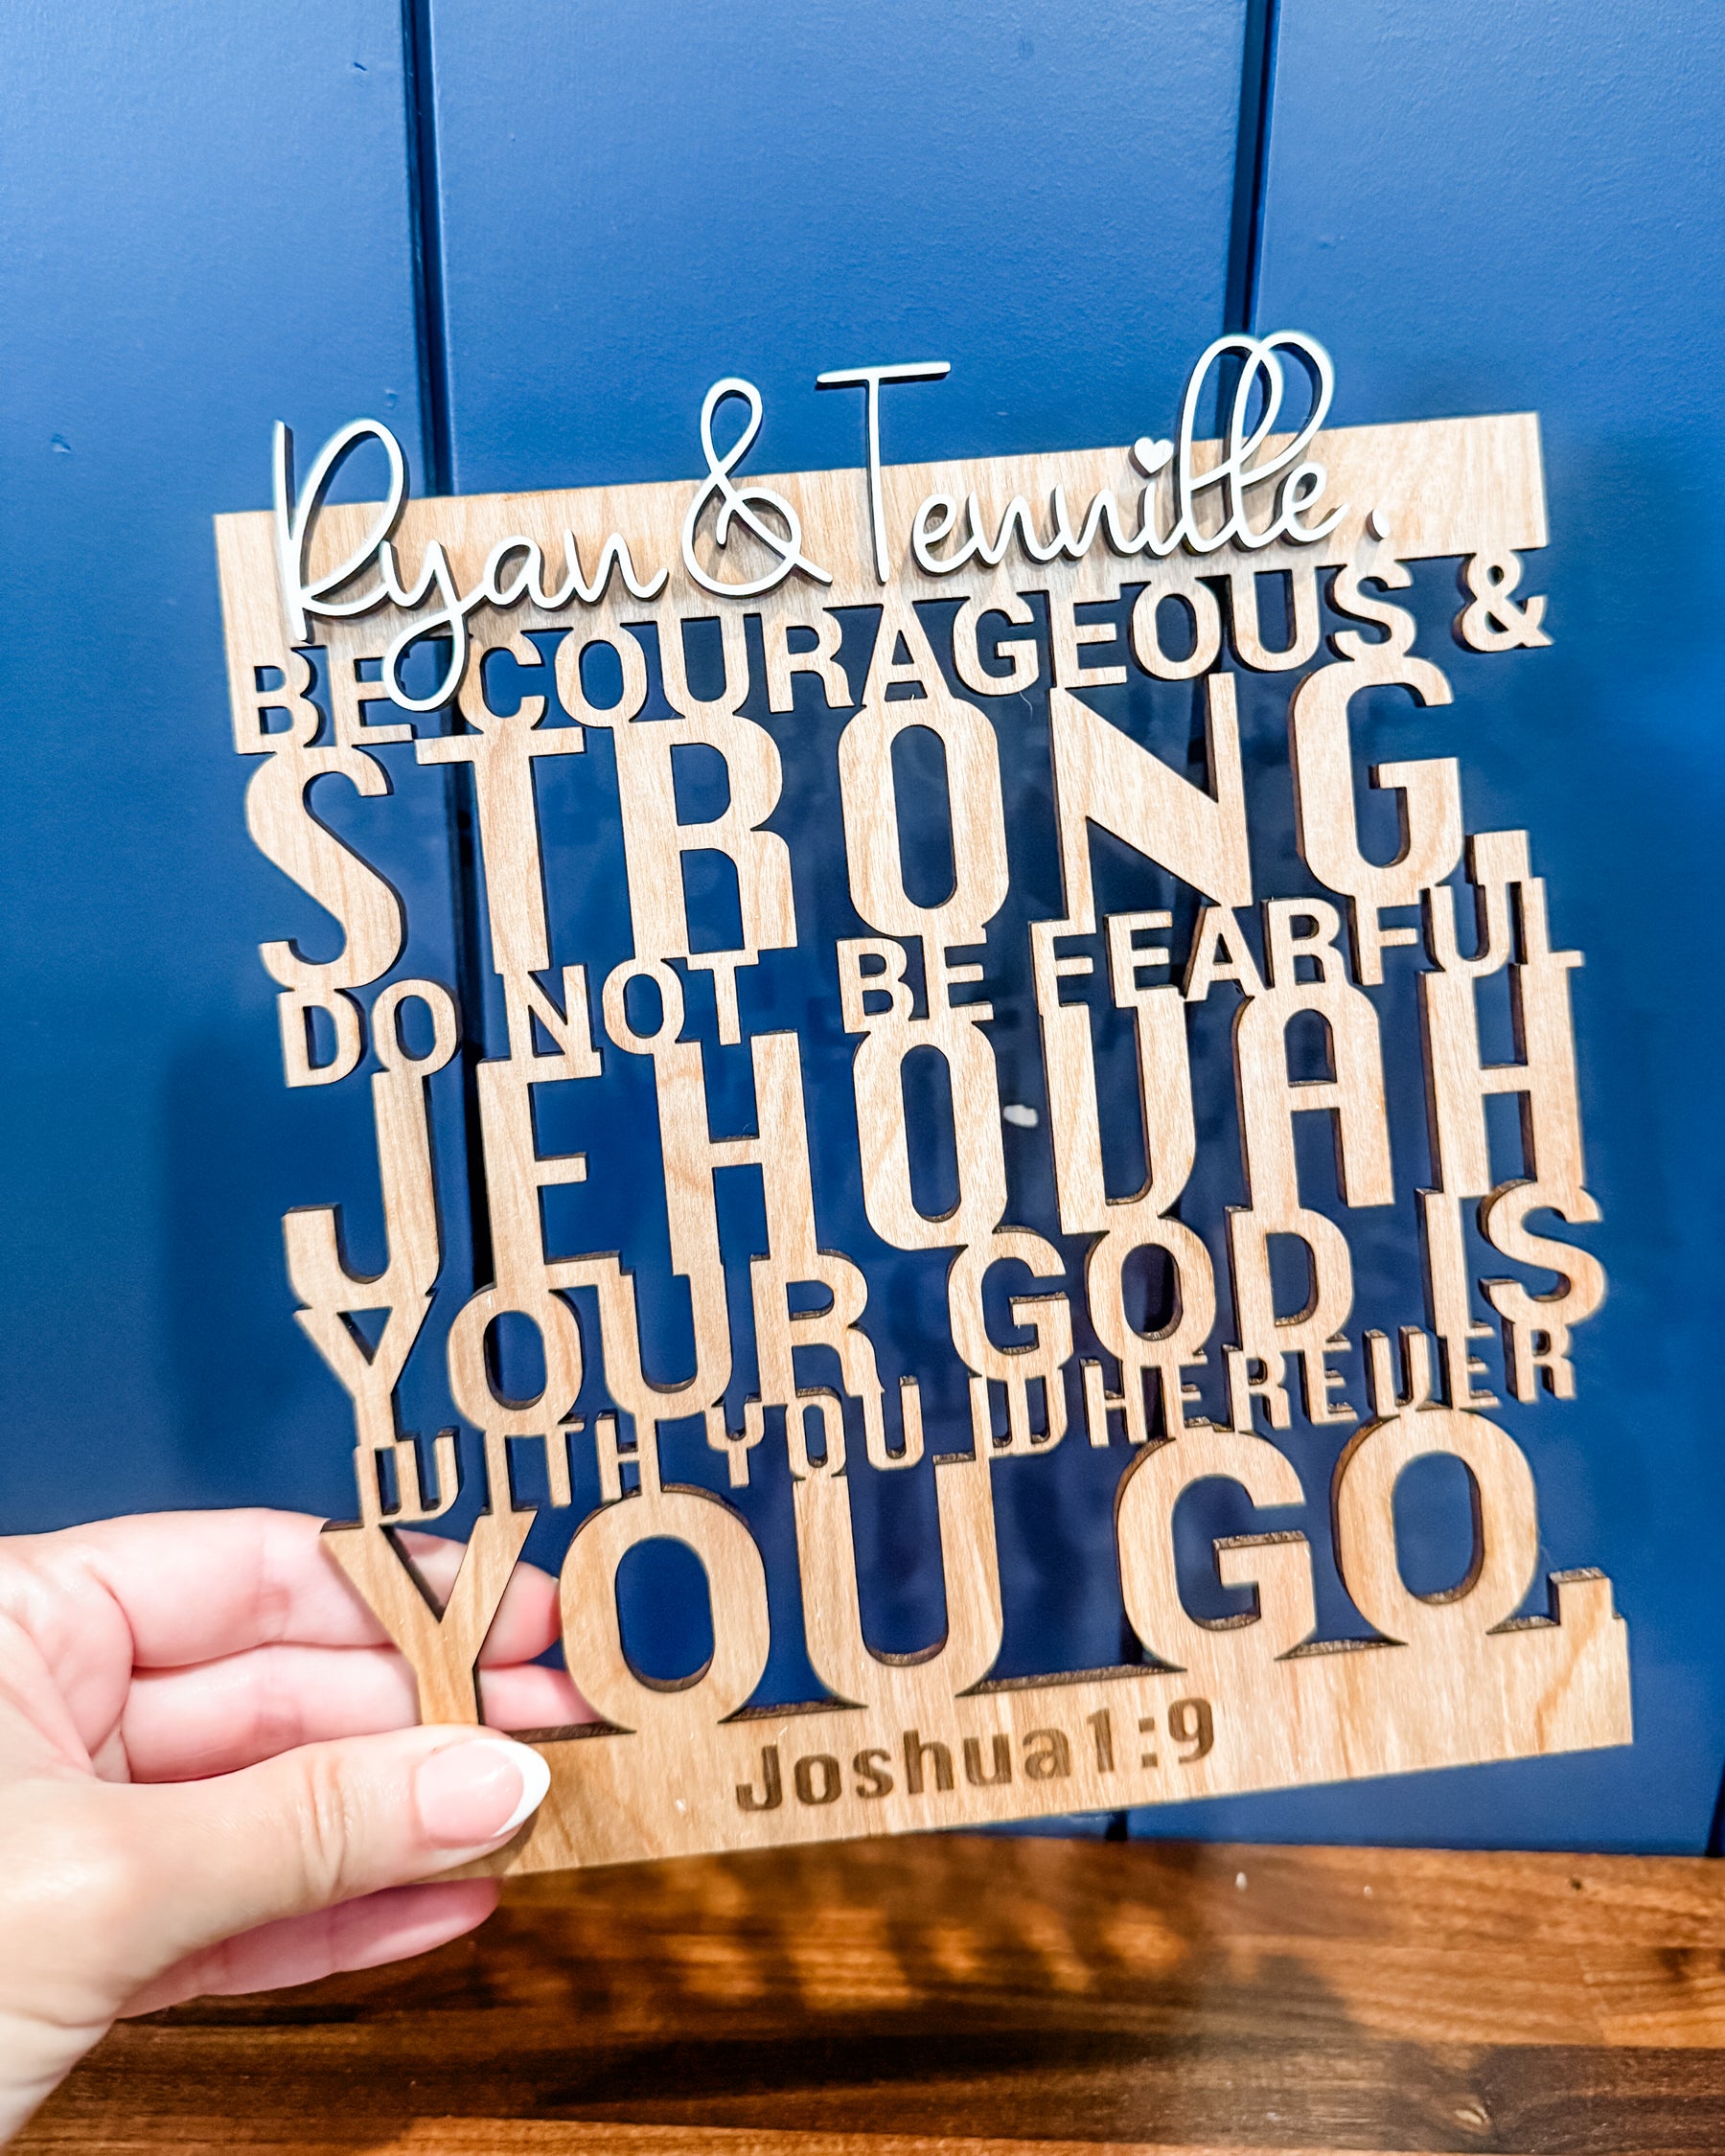 Ryan & Tennille,
BE COURAGEOUS &
STRONG,
DO NOT BE FEARFUL
JEHOVAH
YOUR GOD IS
WITH YOU WHEREVER
YOU GO,
Joshua1:9